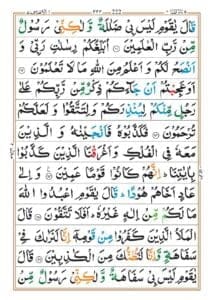 قَالَ يٰقَوْمِ لَيْسَ بِيْ ضَلٰلَةٌ وَّلٰكِنِّيْ رَسُوْلٌ
مِّنْ رَّبِّ الْعٰلَمِيْنَ ۝ اُبَلِّغُكُمْ رِسٰلٰتِ رَبِّيْ وَ
اَنْصَحُ لَكُمْ وَاَعْلَمُ مِنَ اللّٰهِ مَا لَا تَعْلَمُوْنَ ۝
اَوَعَجِبْتُمْ اَنْ جَآءَكُمْ ذِكْرٌ مِّنْ رَّبِّكُمْ عَلٰى
رَجُلٍ مِّنْكُمْ لِيُنْذِرَكُمْ وَلِتَتَّقُوْا وَلَعَلَّكُمْ
تُرْحَمُوْنَ ۝ فَكَذَّبُوْهُ فَاَنْجَيْنٰهُ وَالَّذِيْنَ
مَعَهٗ فِي الْفُلْكِ وَاَغْرَقْنَا الَّذِيْنَ كَذَّبُوْا
بِاٰيٰتِنَا ؕ اِنَّهُمْ كَانُوْا قَوْمًا عَمِيْنَ ۝ وَاِلٰى
عَادٍ اَخَاهُمْ هُوْدًا ؕ قَالَ يٰقَوْمِ اعْبُدُوا اللّٰهَ
مَا لَكُمْ مِّنْ اِلٰهٍ غَيْرُهٗ ؕ اَفَلَا تَتَّقُوْنَ ۝ قَالَ
الْمَلَاُ الَّذِيْنَ كَفَرُوْا مِنْ قَوْمِهٖٓ اِنَّا لَنَرٰىكَ فِيْ
سَفَاهَةٍ وَّاِنَّا لَنَظُنُّكَ مِنَ الْكٰذِبِيْنَ ۝ قَالَ
يٰقَوْمِ لَيْسَ بِيْ سَفَاهَةٌ وَّلٰكِنِّيْ رَسُوْلٌ مِّنْ